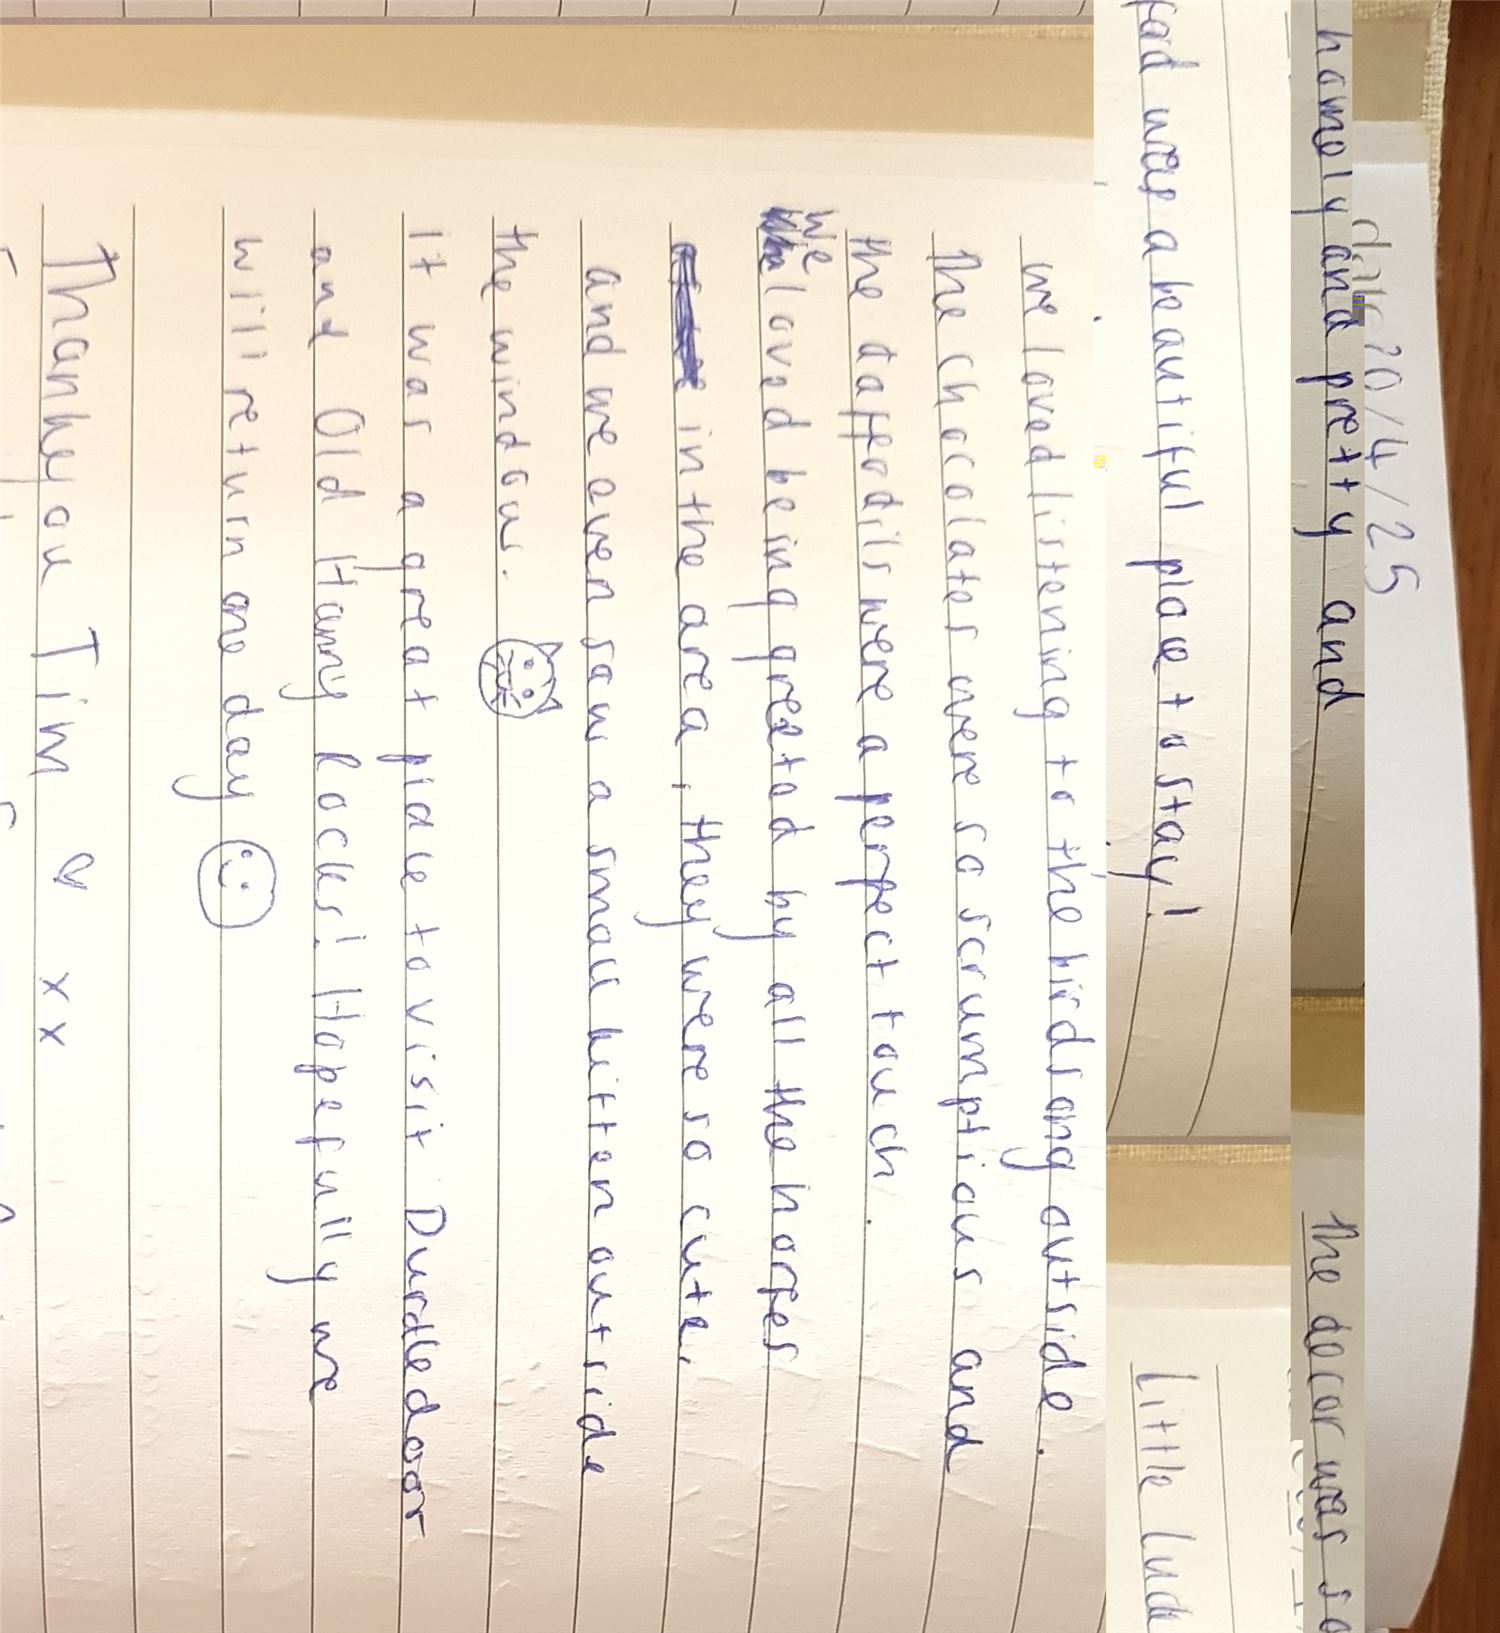 date 20/4/25
homely and pretty and
The decor was so
ford was a beautiful place to stay!
Little Lud
We loved listening to the birdsong outside.
The chocolates were so scrumptious and
the daffodils were a perfect touch.
We loved being greeted by all the horses
in the area, they were so cute,
and we even saw a small kitten outside
the window.
It was a great place to visit Durdledoor
and Old Harry Rocks! Hopefully we
will return one day
Thankyou Tim
x x